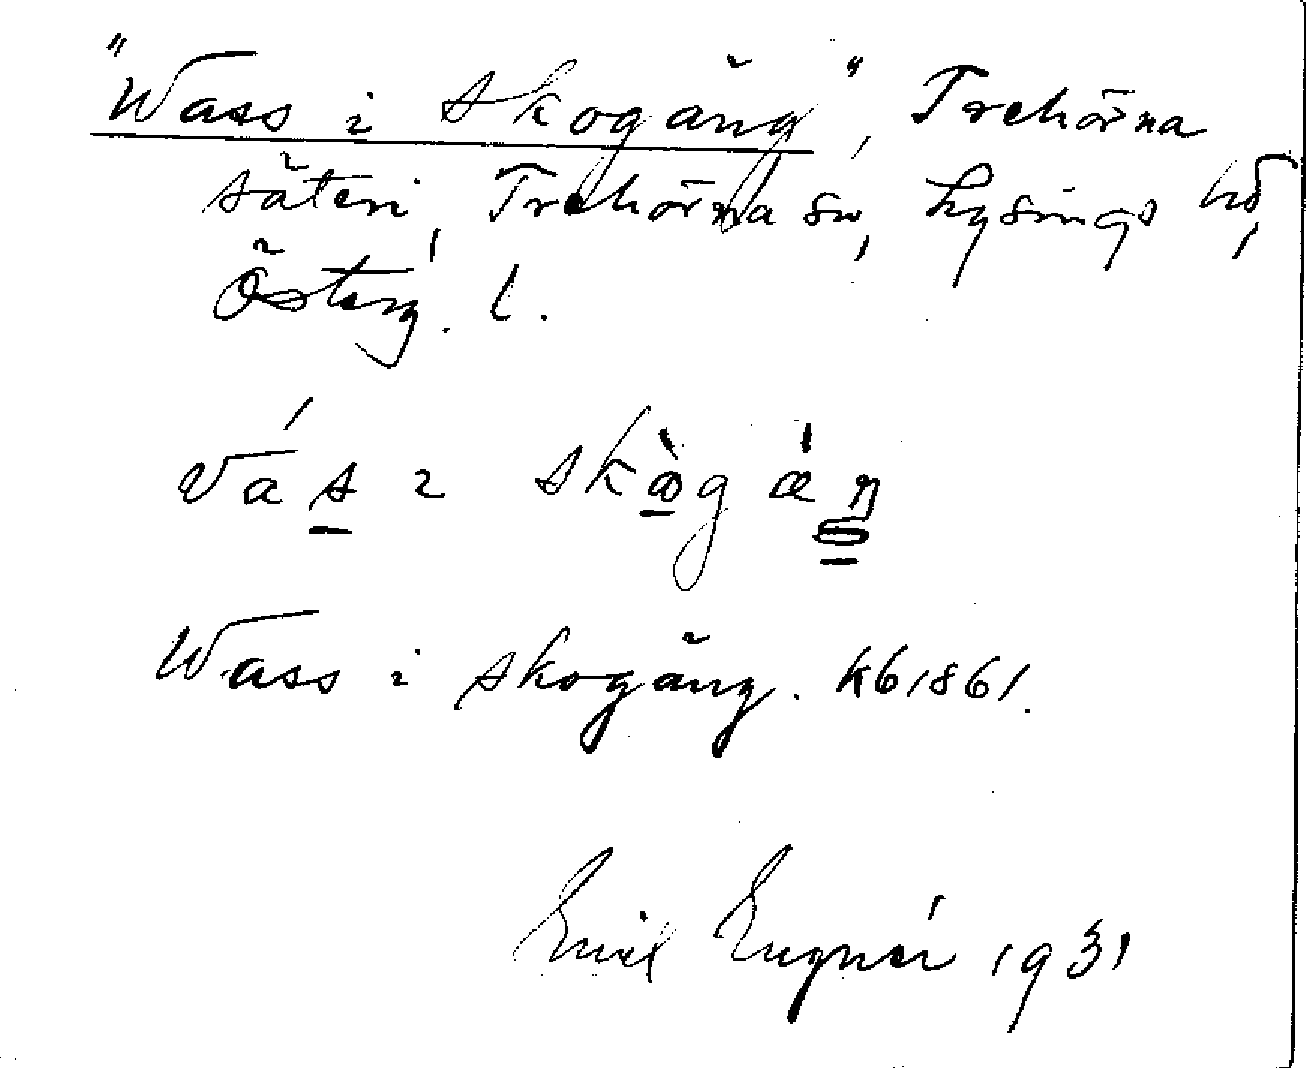 "Wass i skogäng", Trehörna
säteri, Trehörna sn, Lysings hd,
Österg. l.
vás ɩ skògǽŋ
Wass i skogäng. Kb 1861.
Emil Eugnér 1931